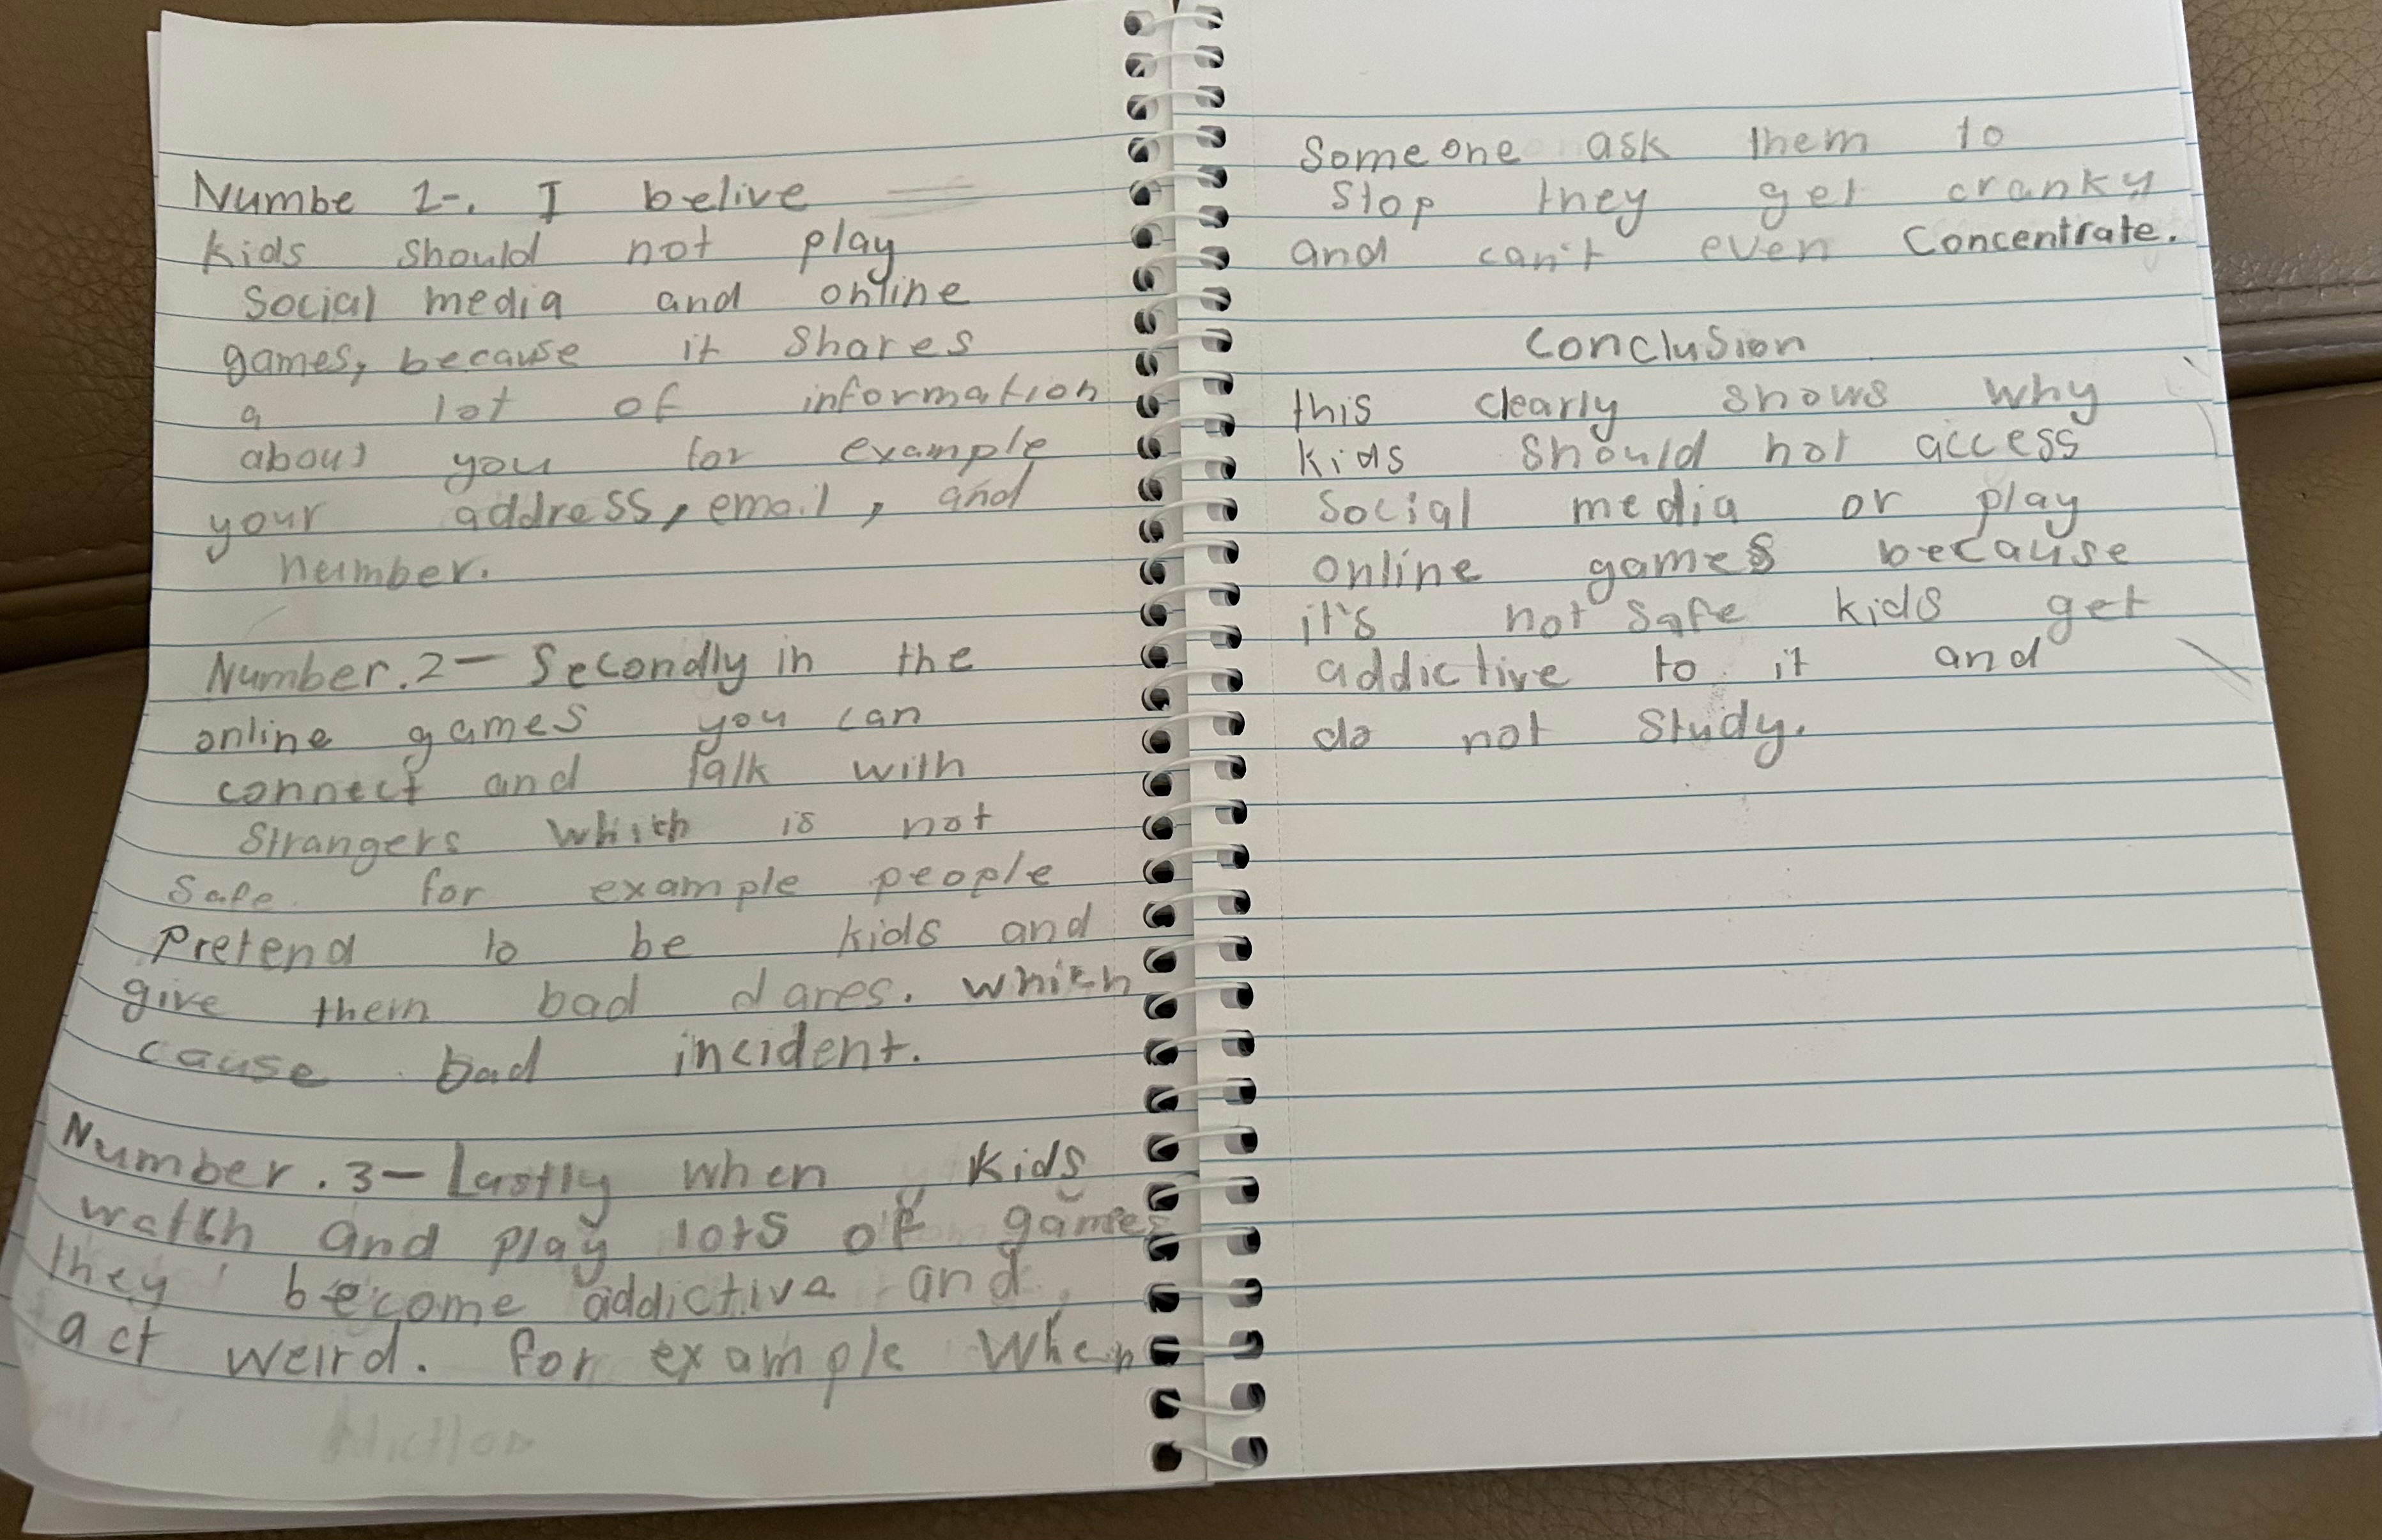 Numbe 1-. I belive
kids should not play
Social media and online
games, because it shares
a lot of information
about you for example
your address, email, and
number.
Number.2- Secondly in the
online games you can
connect and talk with
Strangers which is not
Safe. for example people
Pretend to be kids and
give them bad dares. which
cause bad incident.
Number.3- Lastly when kids
watch and play lots of games
they become addictive and
act weird. for example When
Someone ask them to
Stop they get cranky
and can't even Concentrate.
Conclusion
this clearly shows why
kids should not access
Social media or play
online games because
it's not safe kids get
addictive to it and
do not Study.